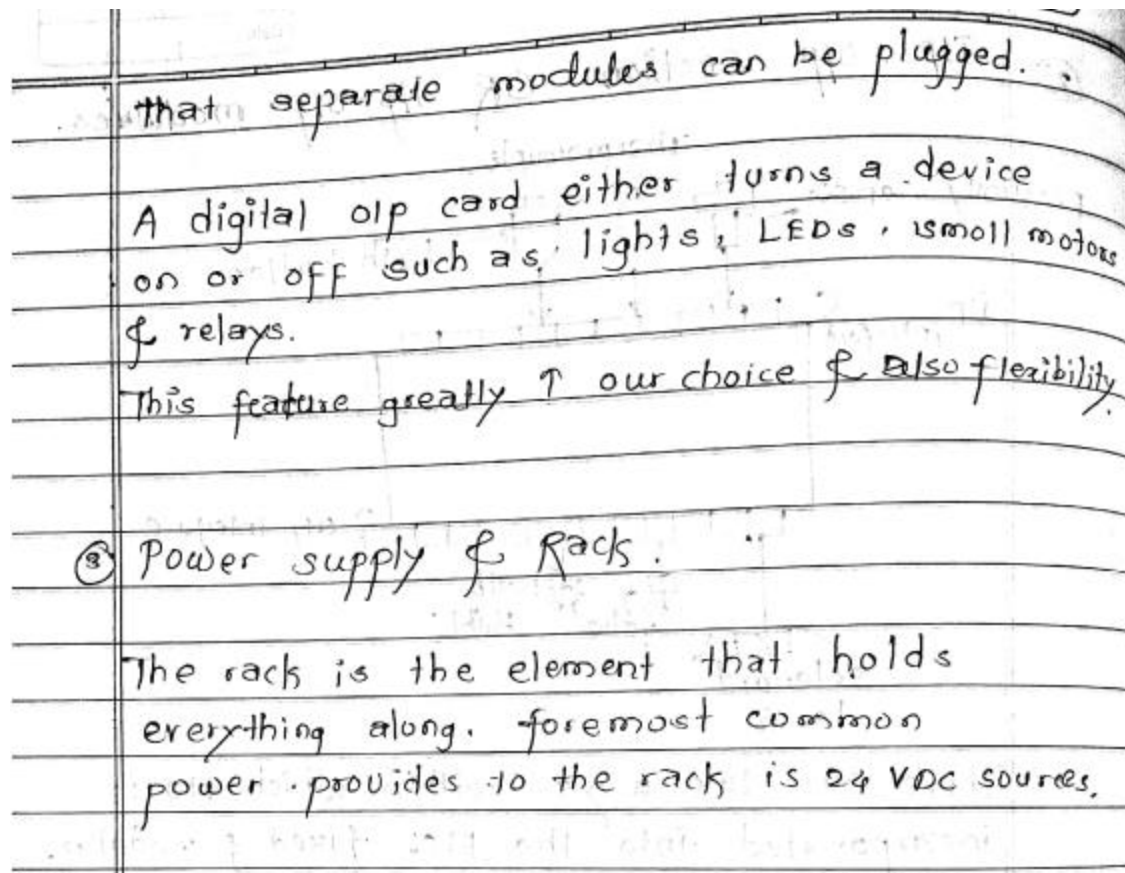 that separate modules can be plugged.
A digital o/p card either turns a device
on or off such as, lights, LEDs, small motors
& relays.
This feature greatly ↑ our choice & also flexibility.
③ Power supply & Rack.
The rack is the element that holds
everything along. foremost common
power provides to the rack is 24 VDC sources.